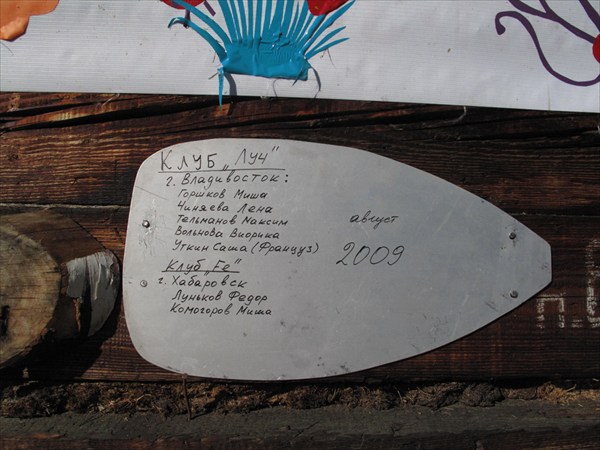 КЛУБ „ЛУЧ"
г. Владивосток:
Горшков Миша
Чиняева Лена
Тельманов Максим
Вольнова Виорика
Уткин Саша (Француз)
август
2009
Клуб „Fe"
г. Хабаровск
Луньков Федор
Комогоров Миша